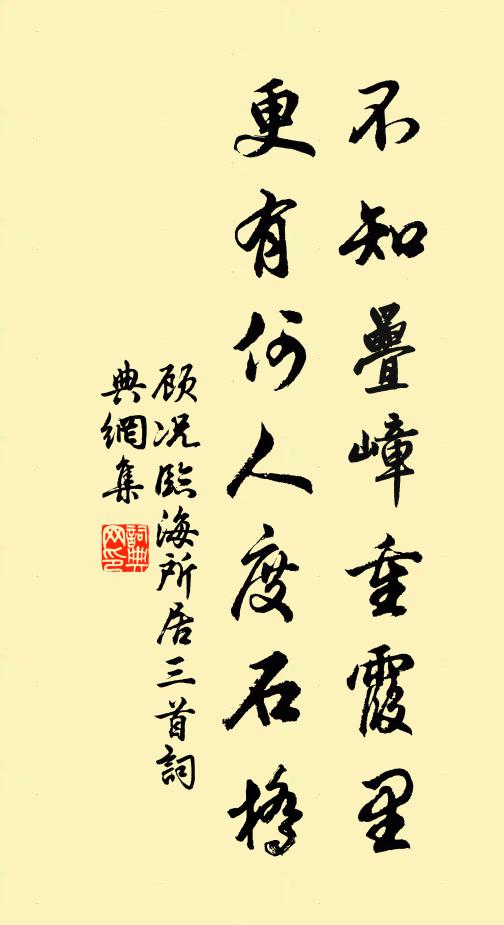 不知疊嶂重霞里
更有何人度石橋
顾况臨海所居三首詞
典網集
詞典
网印